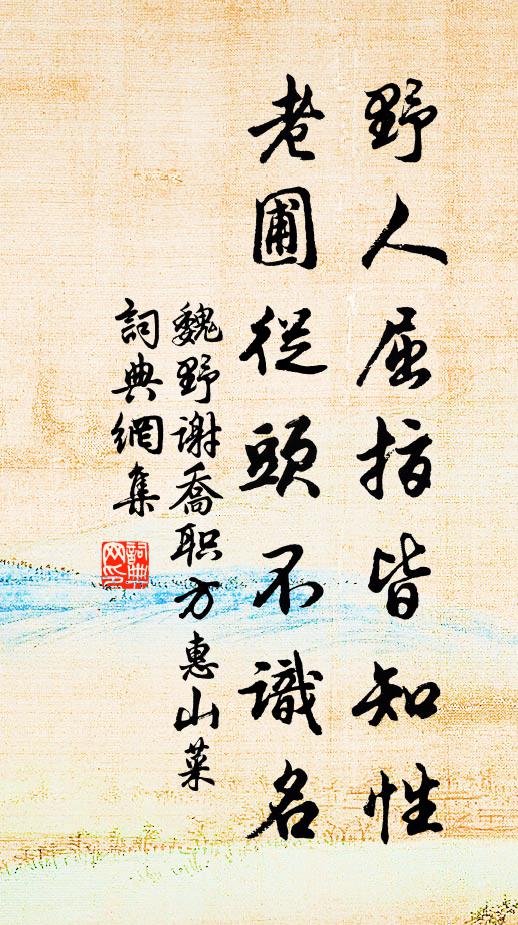 野人屈指皆知性
老圃從頭不識名
魏野谢喬职方惠山菜
詞典網集
詞典网印